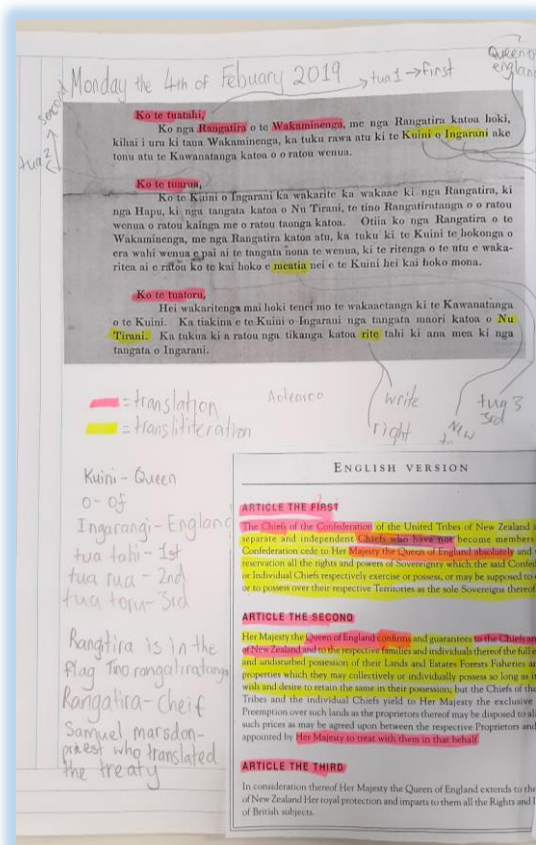 Monday the 4th of Febuary 2019
tua1 → first
Queen
england
second
tua2
Ko te tuatahi,
Ko nga Rangatira o te Wakaminenga, me nga Rangatira katoa hoki,
kihai i uru ki taua Wakaminenga, ka tuku rawa atu ki te Kuini o Ingarani ake
tonu atu te Kawanatanga katoa o o ratou wenua.
Ko te tuarua,
Ko te Kuini o Ingarani ka wakarite ka wakaae ki nga Rangatira, ki
nga Hapu, ki nga tangata katoa o Nu Tirani, te tino Rangatiratanga o o ratou
wenua o ratou kainga me o ratou taonga katoa. Otiia ko nga Rangatira o te
Wakaminenga, me nga Rangatira katoa atu, ka tuku ki te Kuini te hokonga o
era wahi wenua e pai ai te tangata nona te wenua, ki te ritenga o te utu e waka-
ritea ai e ratou ko te kai hoko e meatia nei e te Kuini hei kai hoko mona.
Ko te tuatoru,
Hei wakaritenga mai hoki tenei mo te wakaaetanga ki te Kawanatanga
o te Kuini. Ka tiakina e te Kuini o Ingarani nga tangata maori katoa o Nu
Tirani. Ka tukua ki a ratou nga tikanga katoa rite tahi ki ana mea ki nga
tangata o Ingarani.
= translation
= translititeration
Aotearoa
write
right
New
tua 3
3rd
Kuini - Queen
o - of
Ingarangi - England
tua tahi - 1st
tua rua - 2nd
tua toru - 3rd
Rangtira is in the
flag Tino rangatiratanga
Rangatira - Cheif
Samuel marsdon -
priest who translated
the treaty
ENGLISH VERSION
ARTICLE THE FIRST
The Chiefs of the Confederation of the United Tribes of New Zealand
separate and independent Chiefs who have not become members
Confederation cede to Her Majesty the Queen of England absolutely and
reservation all the rights and powers of Sovereignty which the said Confed
or Individual Chiefs respectively exercise or possess, or may be supposed to
or to possess over their respective Territories as the sole Sovereigns thereof
ARTICLE THE SECOND
Her Majesty the Queen of England confirms and guarantees to the Chiefs an
of New Zealand and to the respective families and individuals thereof the full e
and undisturbed possession of their Lands and Estates Forests Fisheries a
properties which they may collectively or individually possess so long as it
wish and desire to retain the same in their possession; but the Chiefs of the
Tribes and the individual Chiefs yield to Her Majesty the exclusive
Preemption over such lands as the proprietors thereof may be disposed to ali
such prices as may be agreed upon between the respective Proprietors and
appointed by Her Majesty to treat with them in that behalf.
ARTICLE THE THIRD
In consideration thereof Her Majesty the Queen of England extends to the
of New Zealand Her royal protection and imparts to them all the Rights and
of British subjects.